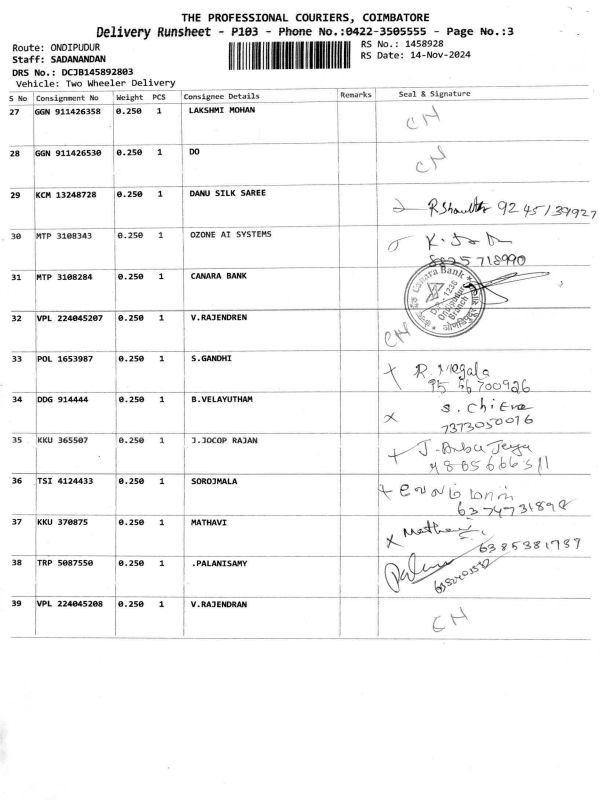 THE PROFESSIONAL COURIERS, COIMBATORE
Delivery Runsheet - P103 - Phone No.:0422-3505555 - Page No.:3
Route: ONDIPUDUR
RS No.: 1458928
Staff: SADANANDAN
RS Date: 14-Nov-2024
DRS No.: DCJB145892803
Vehicle: Two Wheeler Delivery
S No Consignment No Weight PCS Consignee Details Remarks Seal & Signature
27 GGN 911426358 0.250 1 LAKSHMI MOHAN CN
28 GGN 911426530 0.250 1 DO CN
29 KCM 13248728 0.250 1 DANU SILK SAREE 9245139927
30 MTP 3108343 0.250 1 OZONE AI SYSTEMS
31 MTP 3108284 0.250 1 CANARA BANK Canara Bank
32 VPL 224045207 0.250 1 V.RAJENDREN CN
33 POL 1653987 0.250 1 S.GANDHI R. Megala
34 DDG 914444 0.250 1 B.VELAYUTHAM
7373050016
35 KKU 365507 0.250 1 J.JOCOP RAJAN
36 TSI 4124433 0.250 1 SOROJMALA
37 KKU 370875 0.250 1 MATHAVI Mathavi
38 TRP 5087550 0.250 1 .PALANISAMY
39 VPL 224045208 0.250 1 V.RAJENDRAN CN